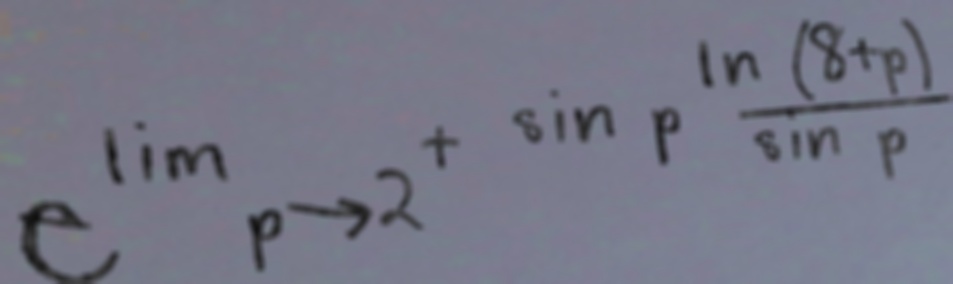 e^{\lim_{p \to 2^+} \sin p \frac{\ln (8+p)}{\sin p}}